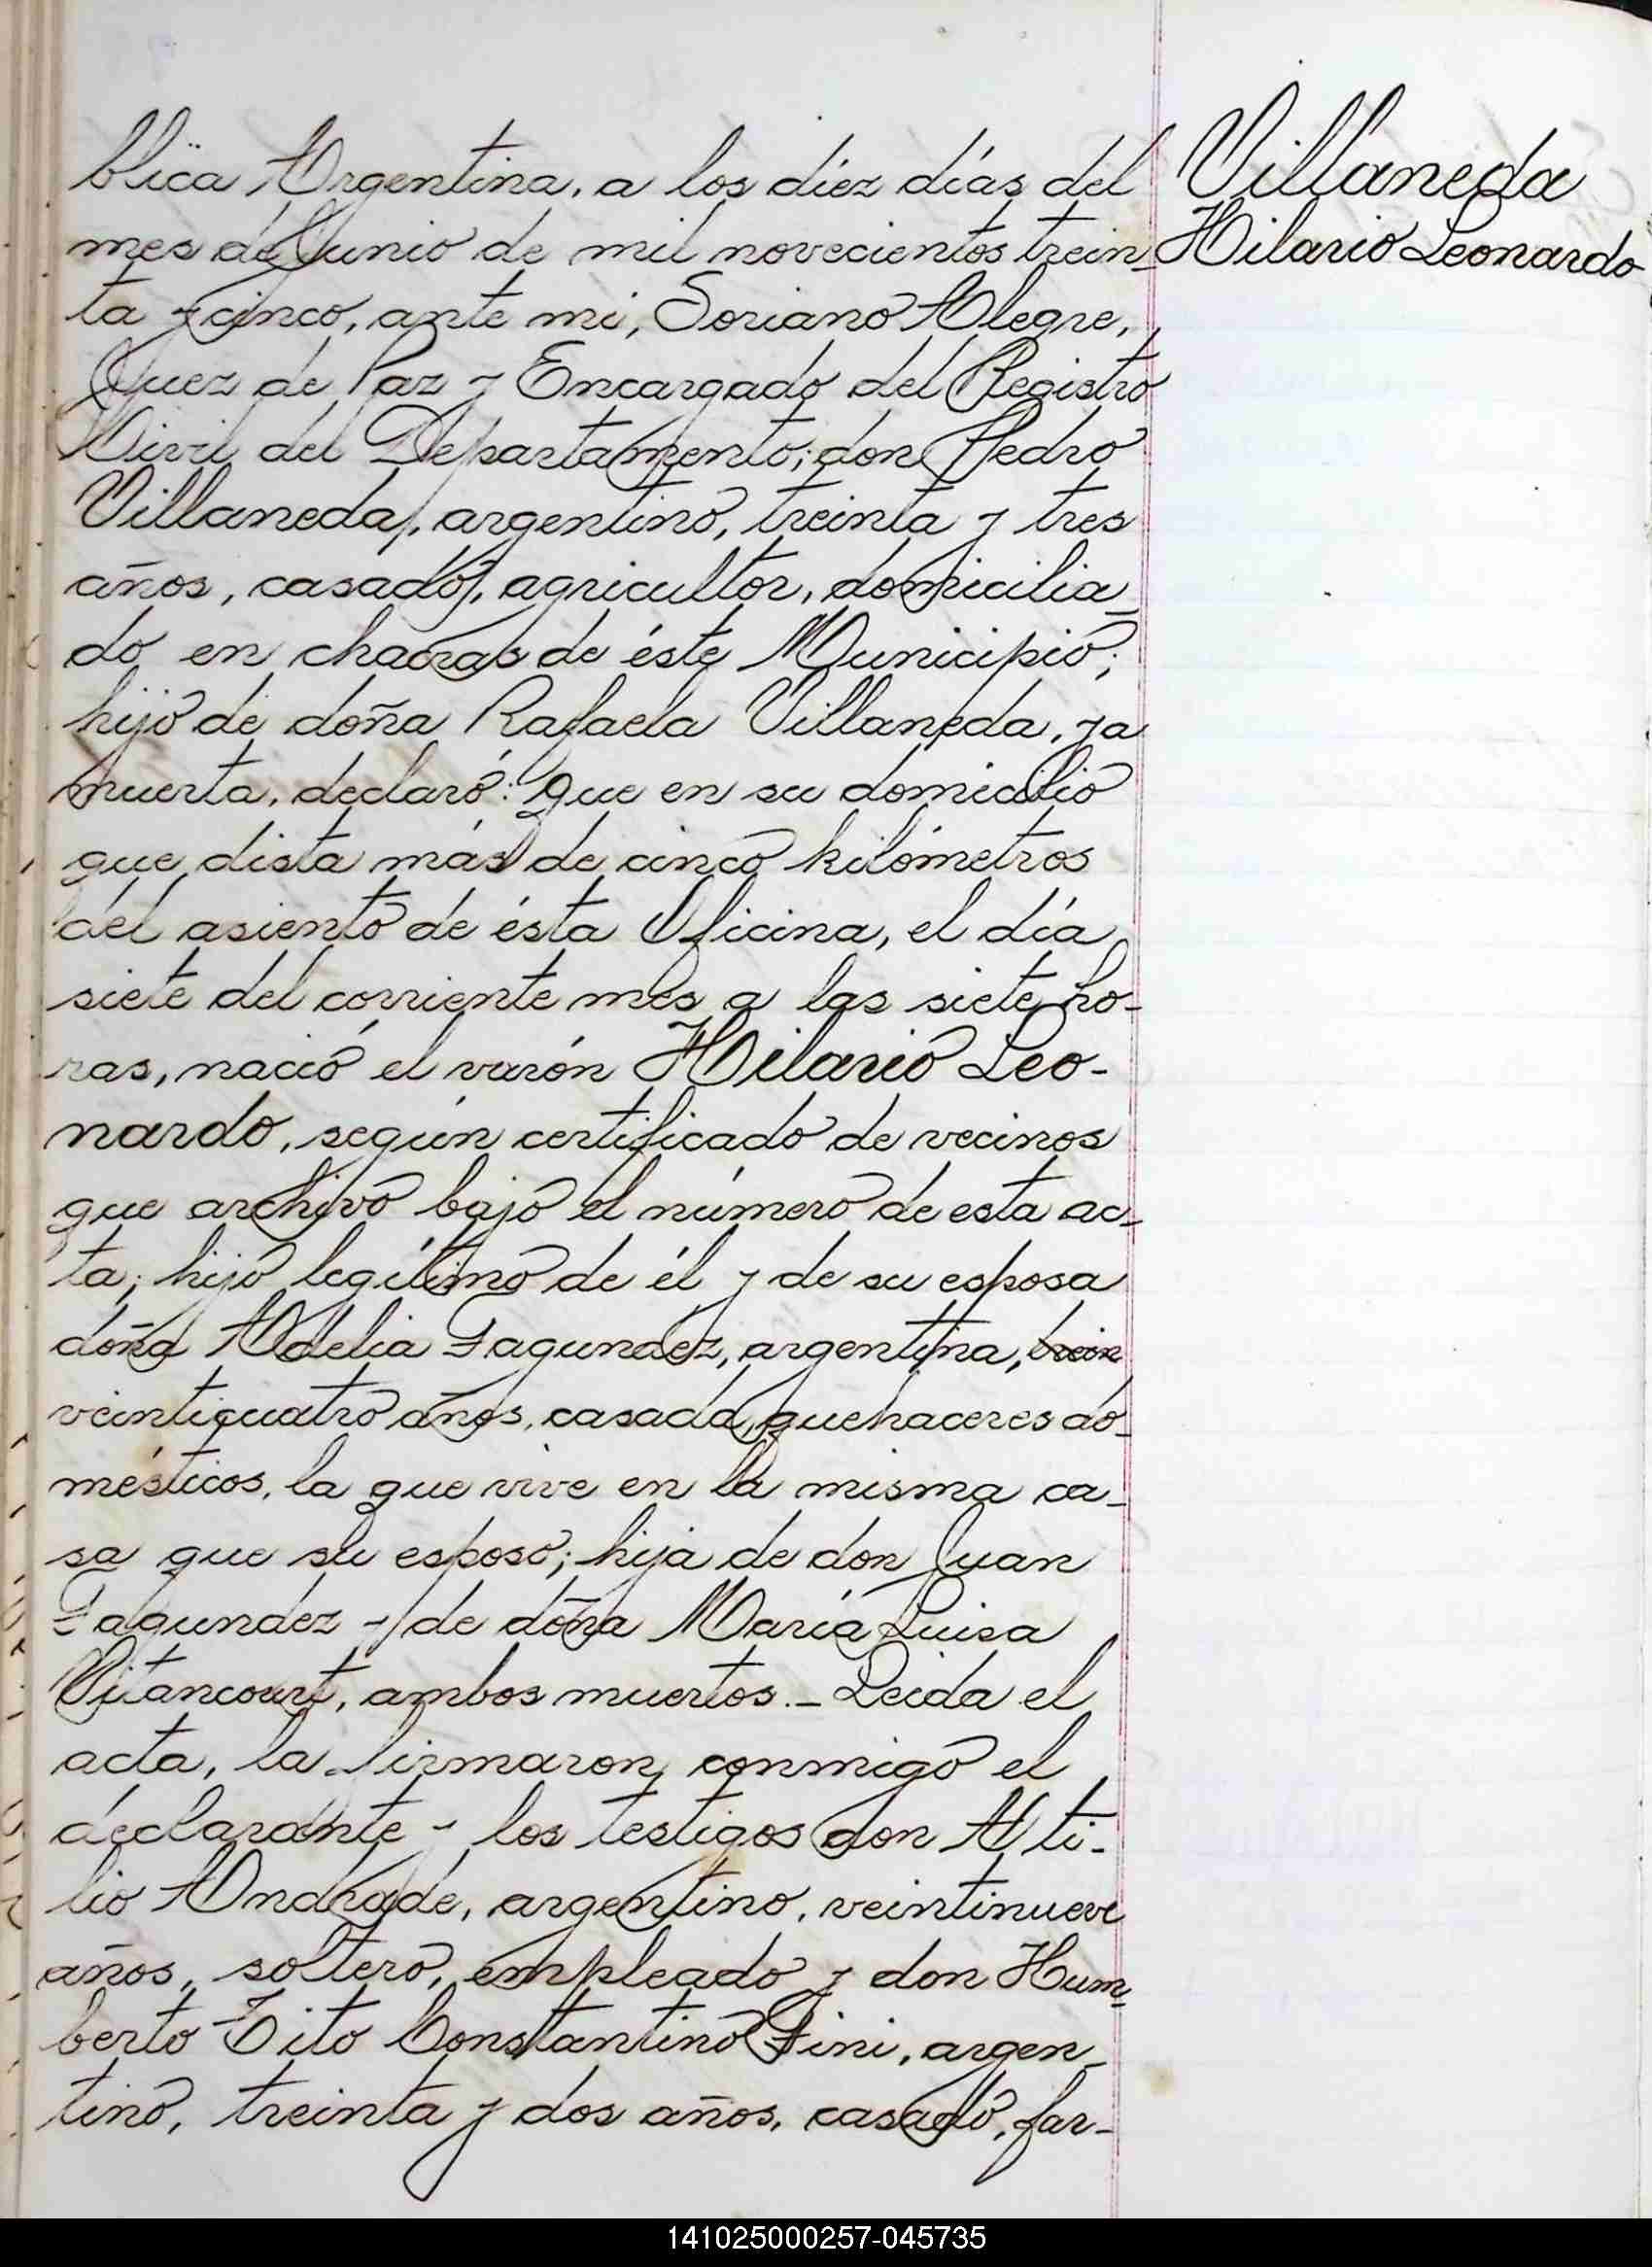 blica Argentina, a los diéz días del
mes de Junio de mil novecientos trein-
ta y cinco, ante mi, Soriano Alegre,
Juez de Paz y Encargado del Registro
Civil del Departamento; don Pedro
Villaneda, argentino, treinta y tres
años, casado, agricultor, domicilia-
do en chacras de éste Municipio;
hijo de doña Rafaela Villaneda, ya
muerta, declaró: Que en su domicilio
que dista más de cinco kilómetros
del asiento de ésta Oficina, el día
siete del corriente mes a las siete ho-
ras, nació el varón Hilario Leo-
nardo, según certificado de vecinos
que archivo bajo el número de esta ac-
ta; hijo legítimo de él y de su esposa
doña Adelia Fagundez, argentina, trein
veinticuatro años, casada, quehaceres do-
mésticos, la que vive en la misma ca-
sa que su esposo; hija de don Juan
Fagundez y de doña María Luisa
Vitancourt, ambos muertos.- Leída el
acta, la firmaron conmigo el
declarante y los testigos don Ati-
lio Andrade, argentino, veintinueve
años, soltero, empleado y don Hum-
berto Tito Constantino Fini, argen-
tino, treinta y dos años, casado, far-
Villaneda
Hilario Leonardo
141025000257-045735